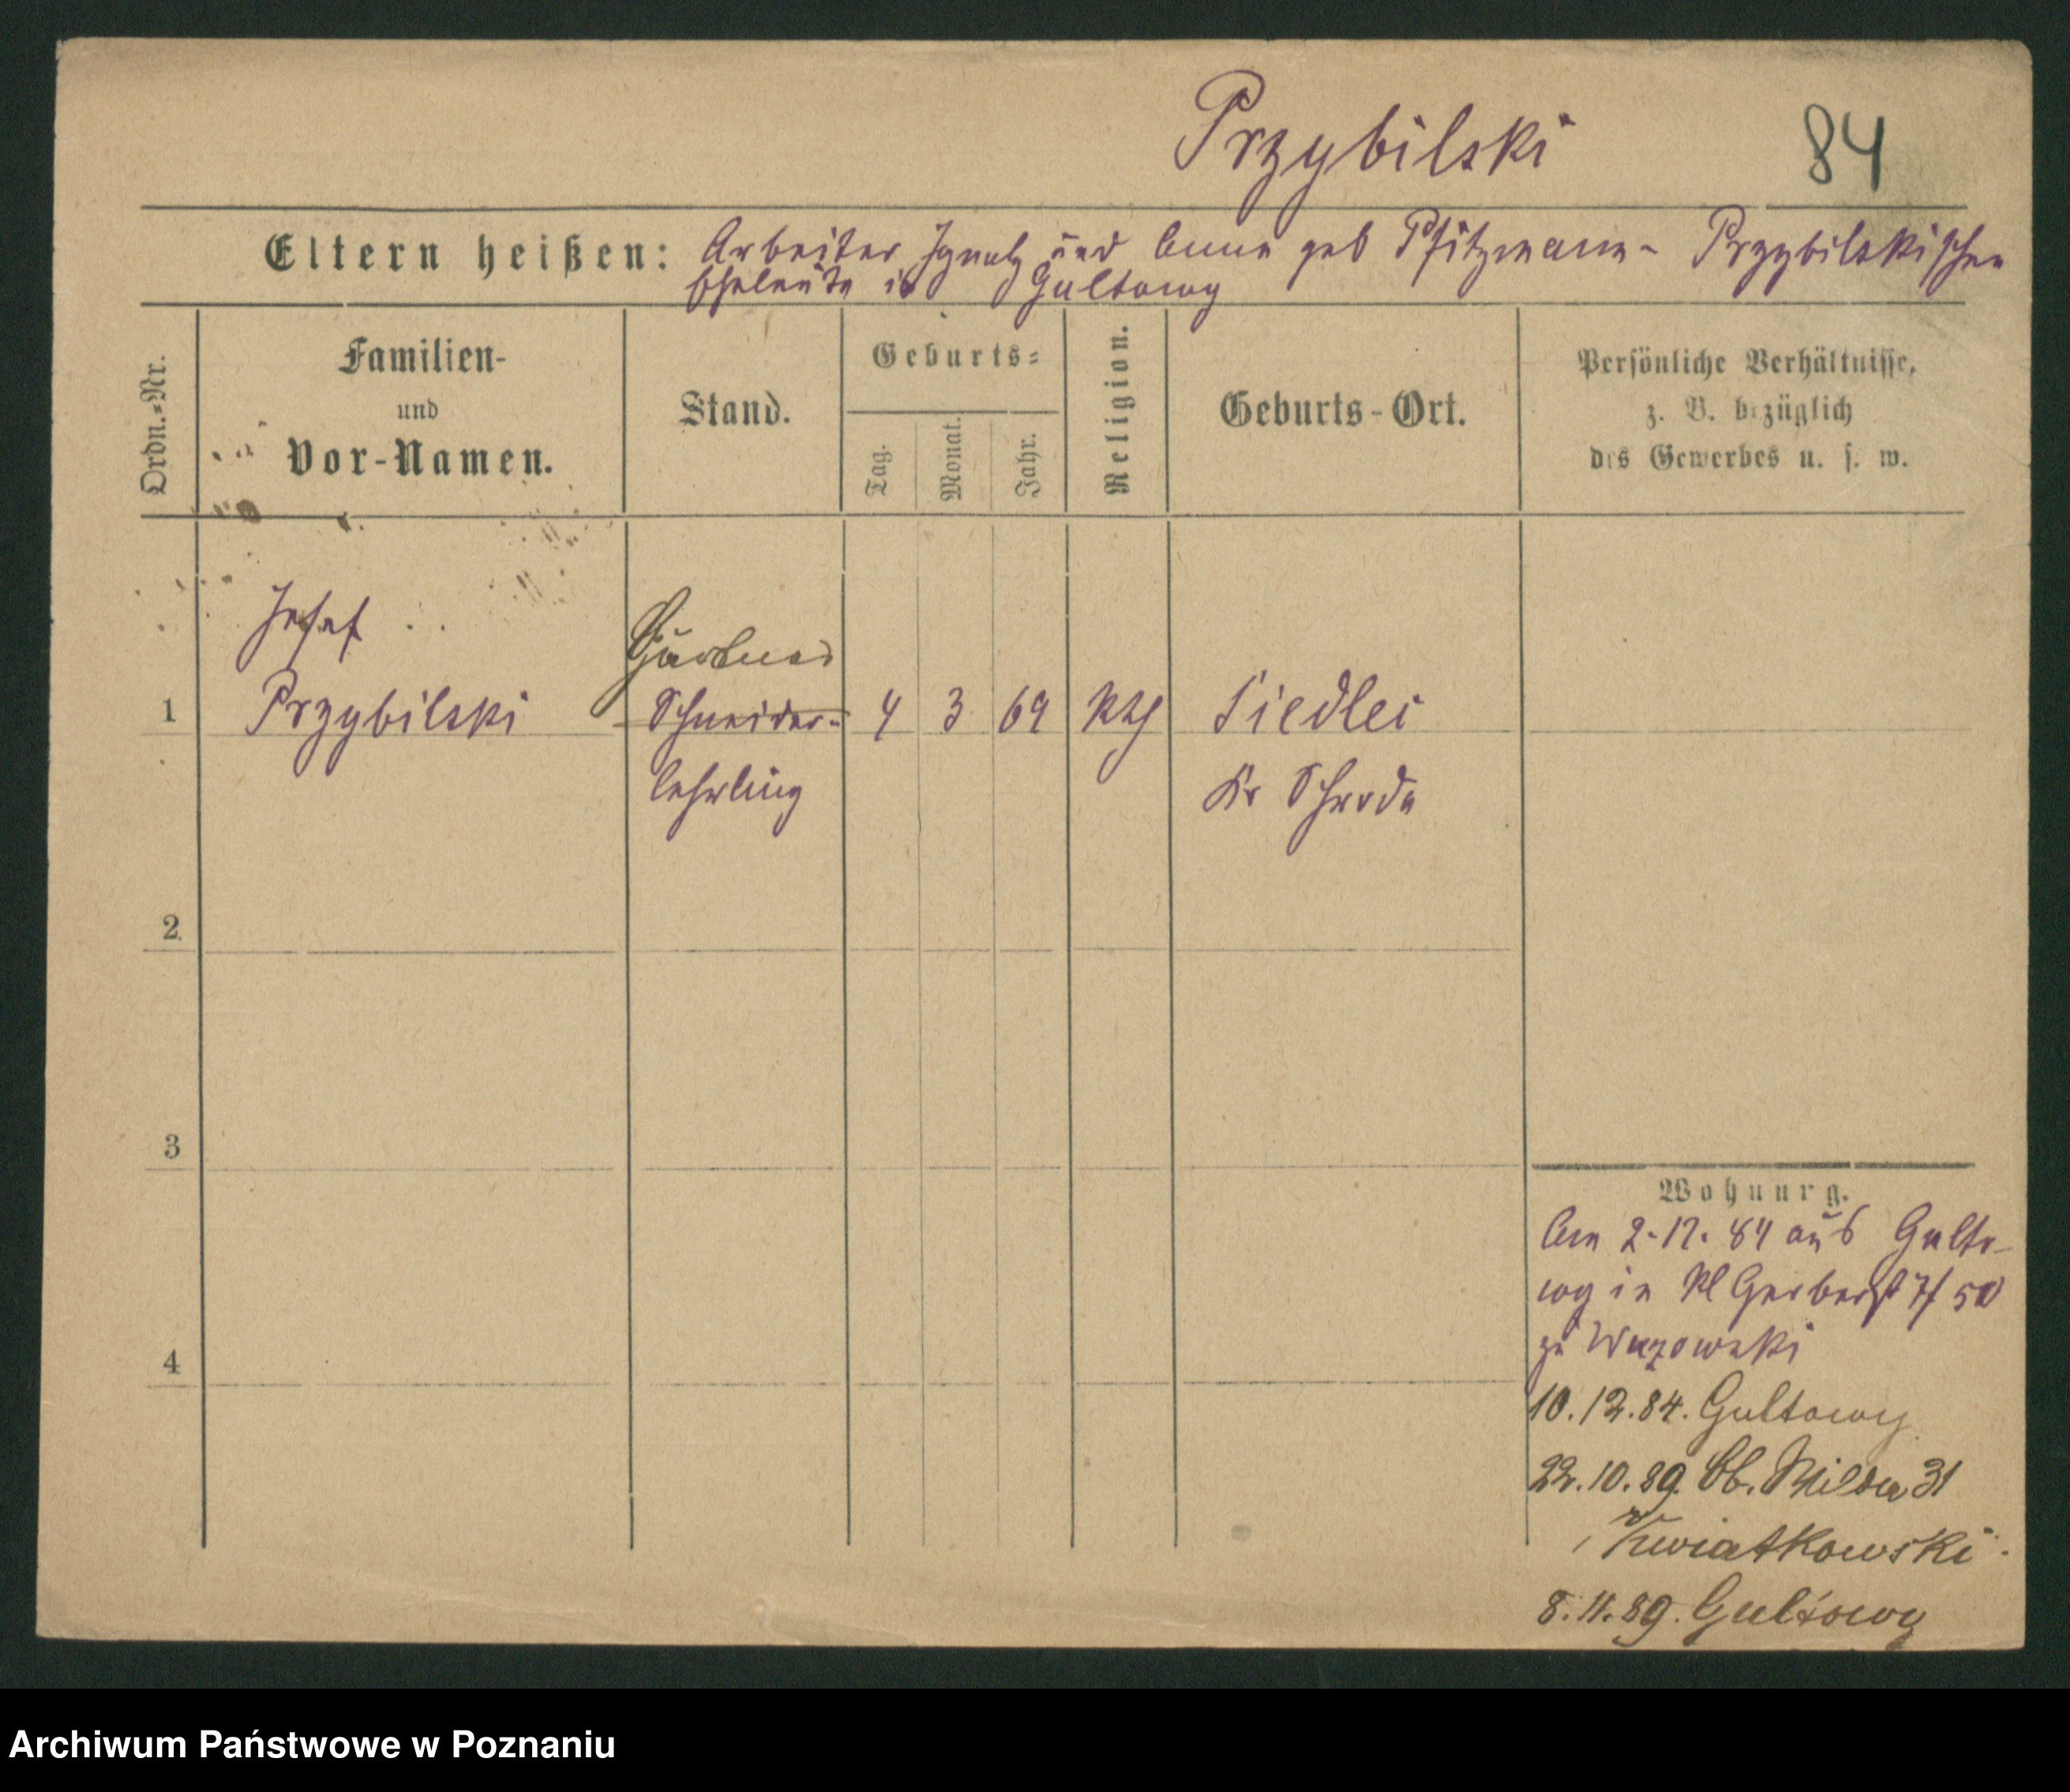 Przybilski
84
Eltern heißen: Arbeiter Ignatz und Anna geb Pfitzmann- Przybilskischen
Eheleute in Gultowy
Ordn.=Nr.
Familien-
und
Vor-Namen.
Stand.
Geburts=
Tag.
Monat.
Jahr.
Religion.
Geburts-Ort.
Persönliche Verhältnisse,
z. B. bezüglich
des Gewerbes u. s. w.
Josef
Gärtner
1 Przybilski Schneider- 4 3 69 kth Siedlec
lehrling Kr Schroda
2
3
4
Wohnung.
Am 2.12.84 aus Gulto-
wy in Kl Gerberst 7/
zu
10.12.84. Gultowy
22.10.89. Ob. Wilda 31
Kwiatkowski.
8.11.89. Gultowy
Archiwum Państwowe w Poznaniu